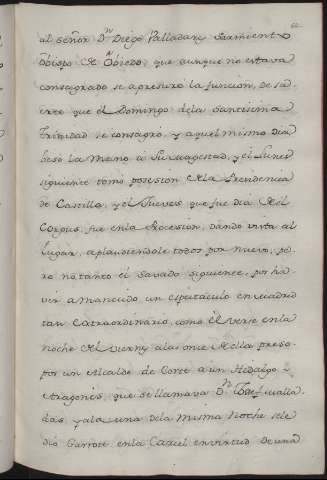 al señor Dn Diego Palladary Sarmiento
Obispo de Obiedo, que aunque no estava
consagrado se apresuró la funcion, de sa
erte que el Domingo dela Santissima
Trinidad se consagró, y aquel mismo dia
besó la Mano à Su Magestad, y el Lunes
siguiente tomò posesion dela Presidencia
de Castilla, y el Jueves que fue dia del
Corpus, fue enla Procession, dando vista al
lugar, aplaudiendole todos por nuevo, pe
ro no tanto el Savado siguiente, por ha
ver amanecido un espectaculo en Madrid
tan extraordinario, como el verse enla
noche del Viernes alas once della preso
por un Alcalde de Corte a un Hidalgo
Aragones, que se llamava Dn
das yala una dela misma Noche sele
dió Garrote enla Carcel en virtud de una